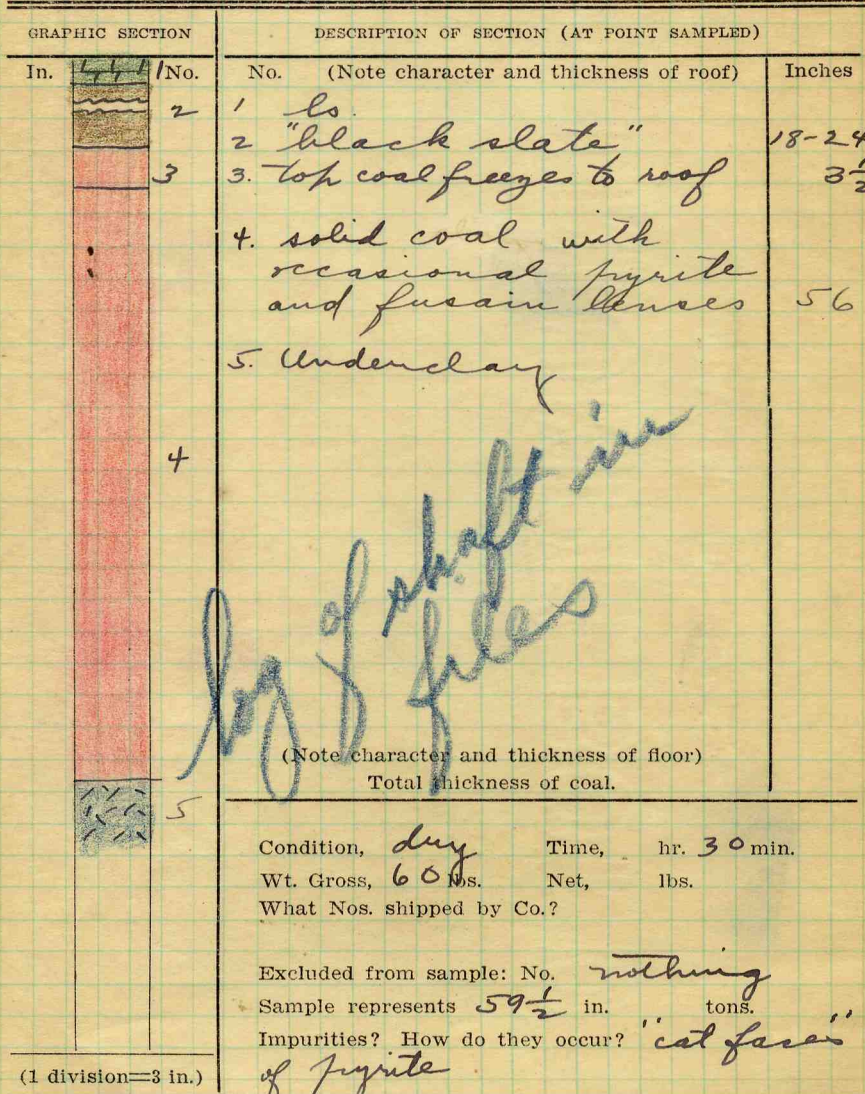 GRAPHIC SECTION
DESCRIPTION OF SECTION (AT POINT SAMPLED)
In. 1 No.
No. (Note character and thickness of roof) Inches
2
1 ls
2 "black slate" 18-24
3
3. top coal freezes to roof 3 1/2
4. solid coal with
occasional pyrite
and fusain lenses 56
5. Underclay
4
log of shaft in
files
(Note character and thickness of floor)
Total thickness of coal.
5
Condition, dry Time, hr. 30 min.
Wt. Gross, 60 lbs. Net, lbs.
What Nos. shipped by Co.?
Excluded from sample: No. nothing
Sample represents 59 1/2 in. tons.
Impurities? How do they occur? "cat faces"
of pyrite
(1 division=3 in.)